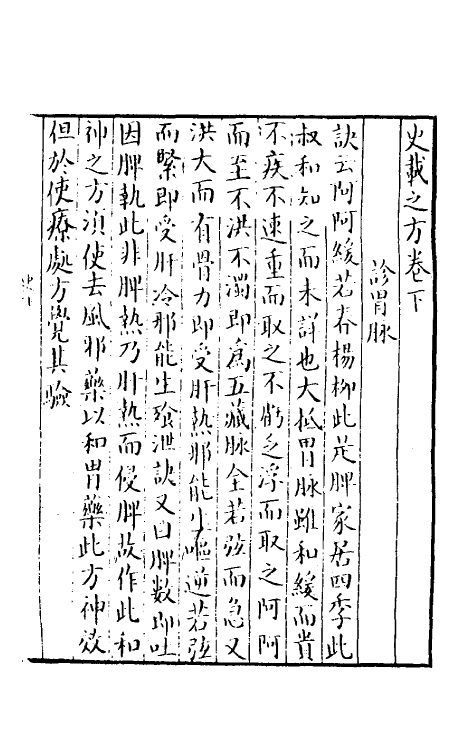 史載之方卷下
診胃脉
訣云阿阿緩若春楊柳此是脾家居四季此
叔和知之而未詳也大抵胃脉雖和緩而貴
不疾不速重而取之不虧乏浮而取之阿阿
而至不洪不濁即爲五藏脉全若弦而急又
洪大而有骨力即受肝熱邪能生嘔逆若弦
而緊即受肝冷邪能生飱泄訣又曰脾數即吐
因脾熱此非脾熱乃肝熱而侵脾故作此和
神之方須使去風邪藥以和胃藥此方神效
但於使療處方覺其驗